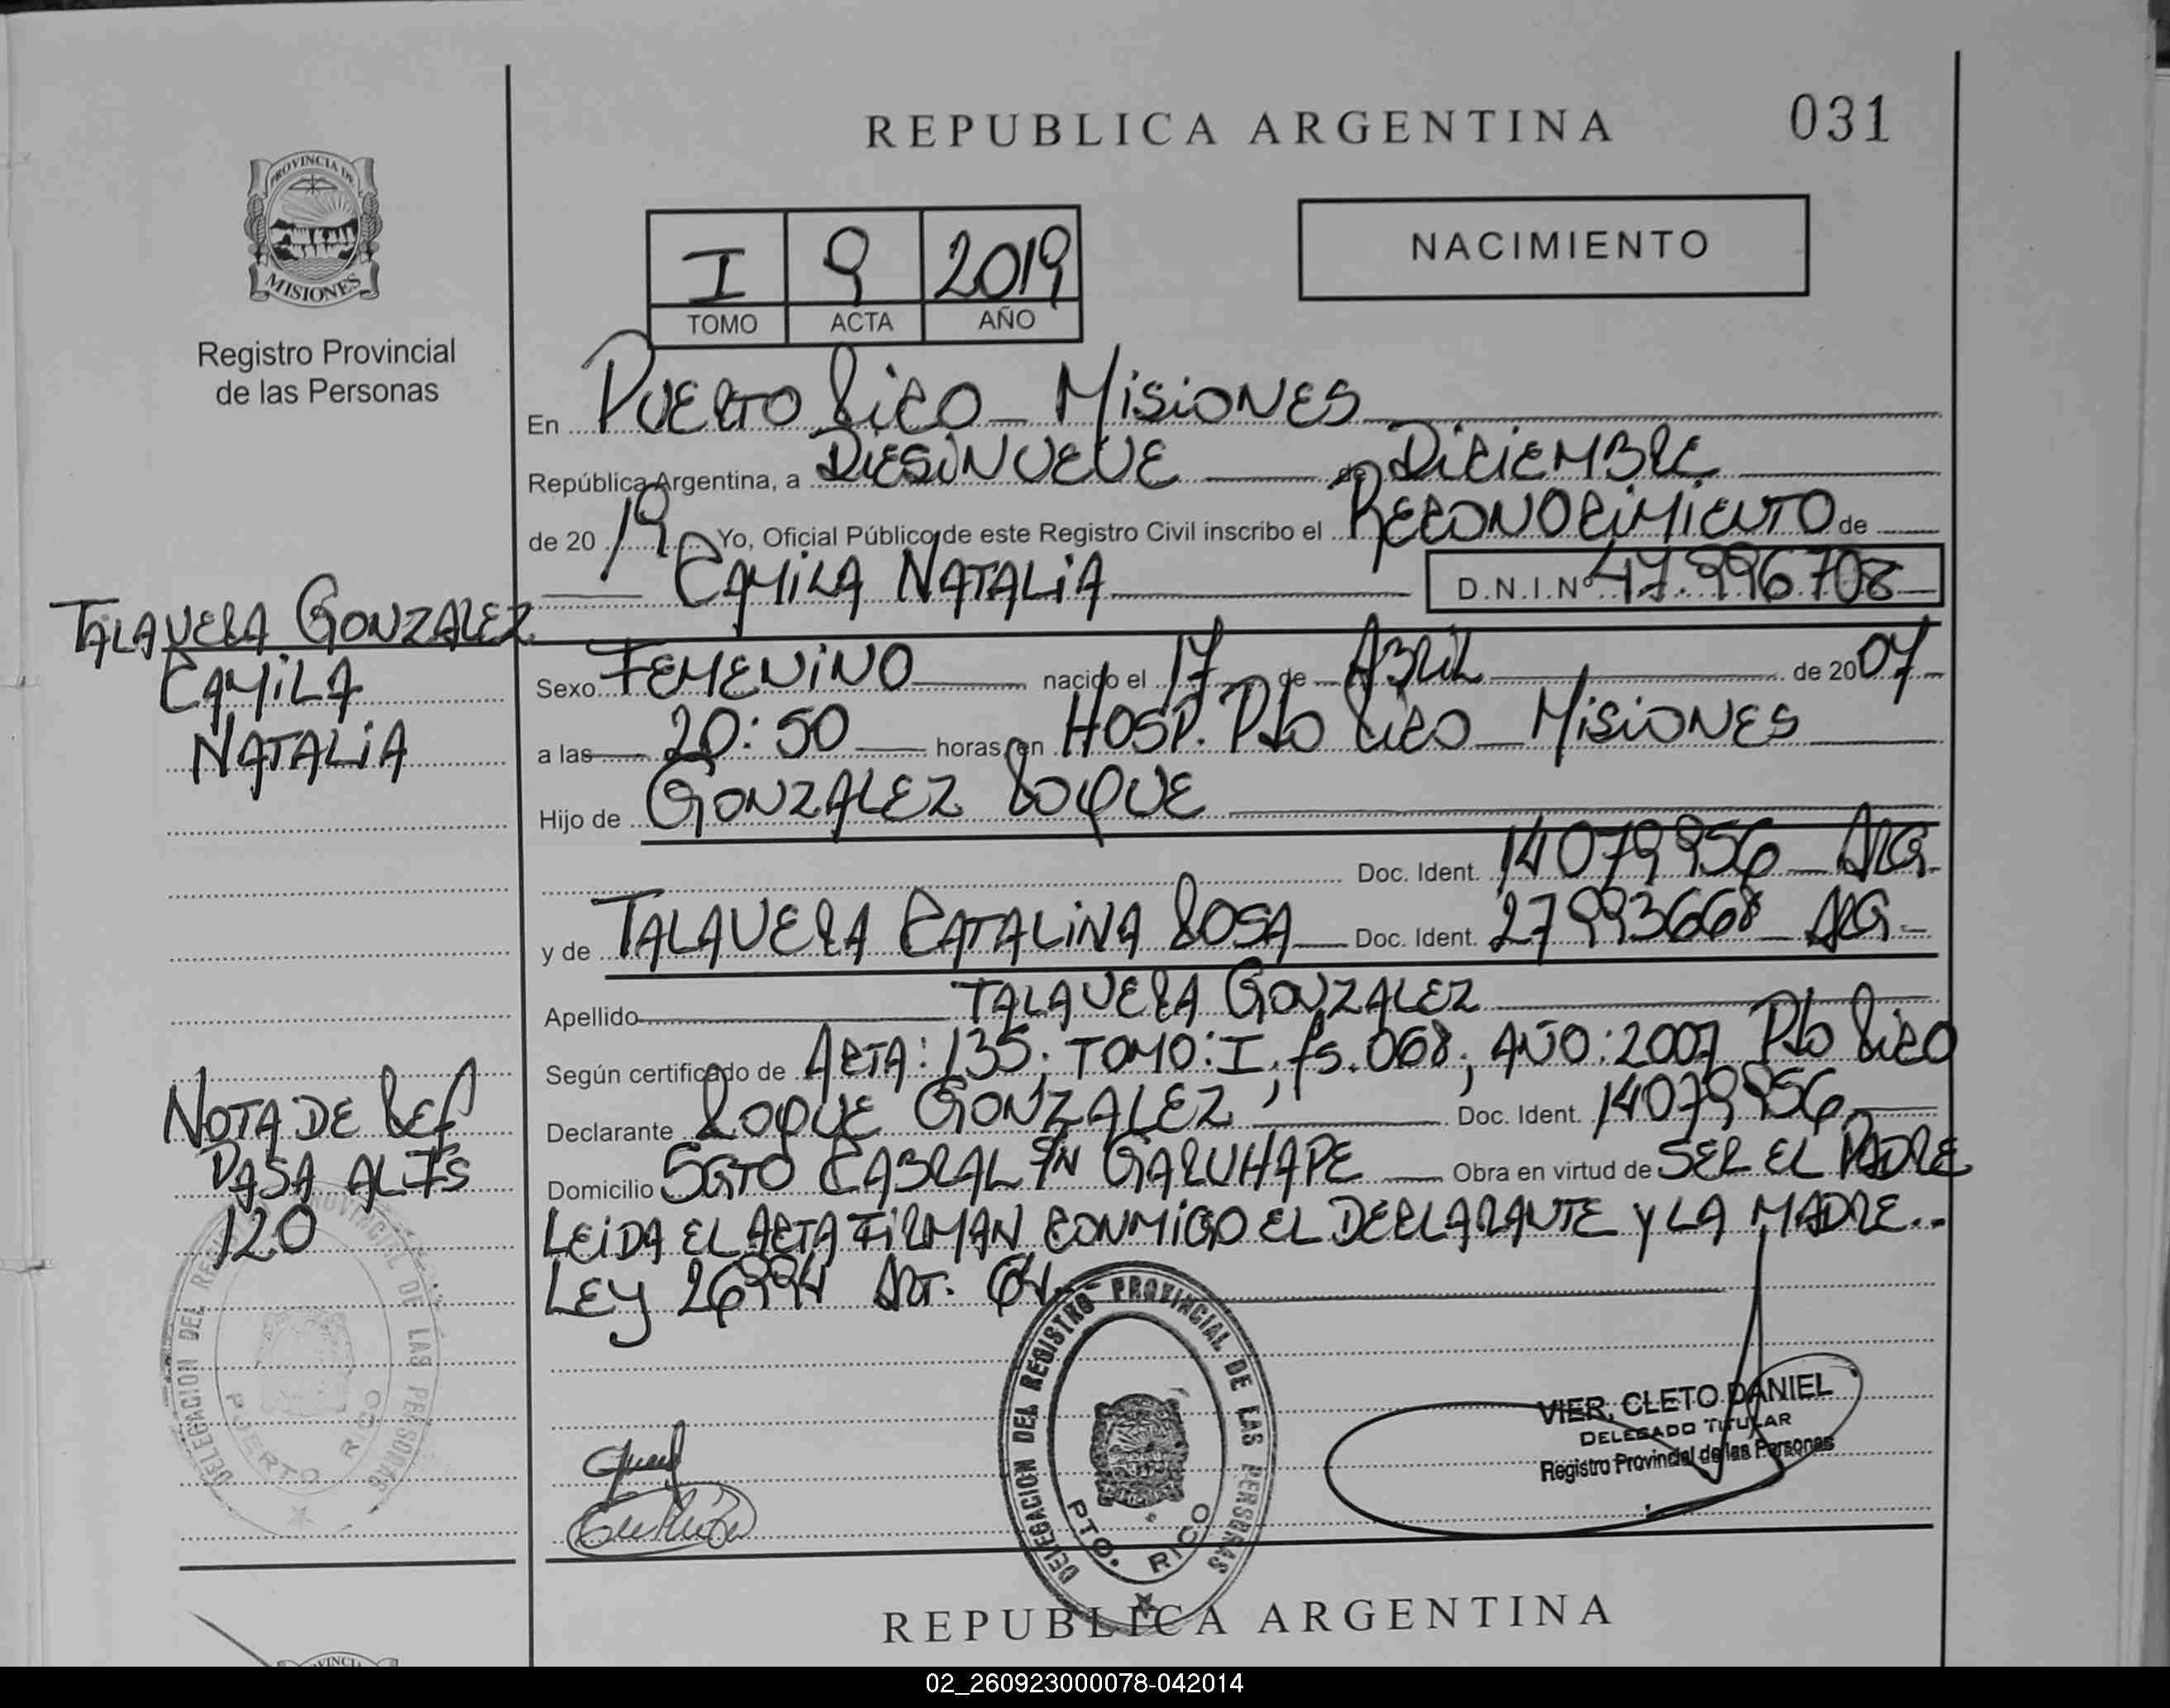 REPUBLICA ARGENTINA
031
PROVINCIA DE
MISIONES
Registro Provincial
de las Personas
I 9 2019
TOMO ACTA AÑO
NACIMIENTO
En PUERTO RICO MISIONES
República Argentina, a DIESINUEVE de DICIEMBRE
de 20 19 Yo, Oficial Público de este Registro Civil inscribo el RECONOCIMIENTO de
CAMILA NATALIA D.N.I.Nº 47.996.708
TALAVERA GONZALEZ
CAMILA
NATALIA
Sexo FEMENINO nacido el 17 de ABRIL de 20 07
a las 20:50 horas, en HOSP. Pto RICO MISIONES
Hijo de GONZALEZ ROQUE
Doc. Ident. 14079956 ARG
y de TALAVERA CATALINA ROSA Doc. Ident. 27993668 ARG
Apellido TALAVERA GONZALEZ
Según certificado de ACTA: 135. TOMO: I, fs. 068; AÑO: 2007 Pto RICO
Declarante ROQUE GONZALEZ Doc. Ident. 14079956
Domicilio SGTO CABRAL S/N GARUHAPE Obra en virtud de SER EL PADRE
LEIDA EL ACTA FIRMAN CONMIGO EL DECLARANTE Y LA MADRE..
LEY 26994 ART. 64.
NOTA DE REF
PASA AL FS
120
DELEGACION DEL REGISTRO PROVINCIAL DE LAS PERSONAS
PUERTO RICO
DELEGACION DEL REGISTRO PROVINCIAL DE LAS PERSONAS
PTO. RICO
VIER, CLETO DANIEL
DELEGADO TITULAR
Registro Provincial de las Personas
REPUBLICA ARGENTINA
02_260923000078-042014